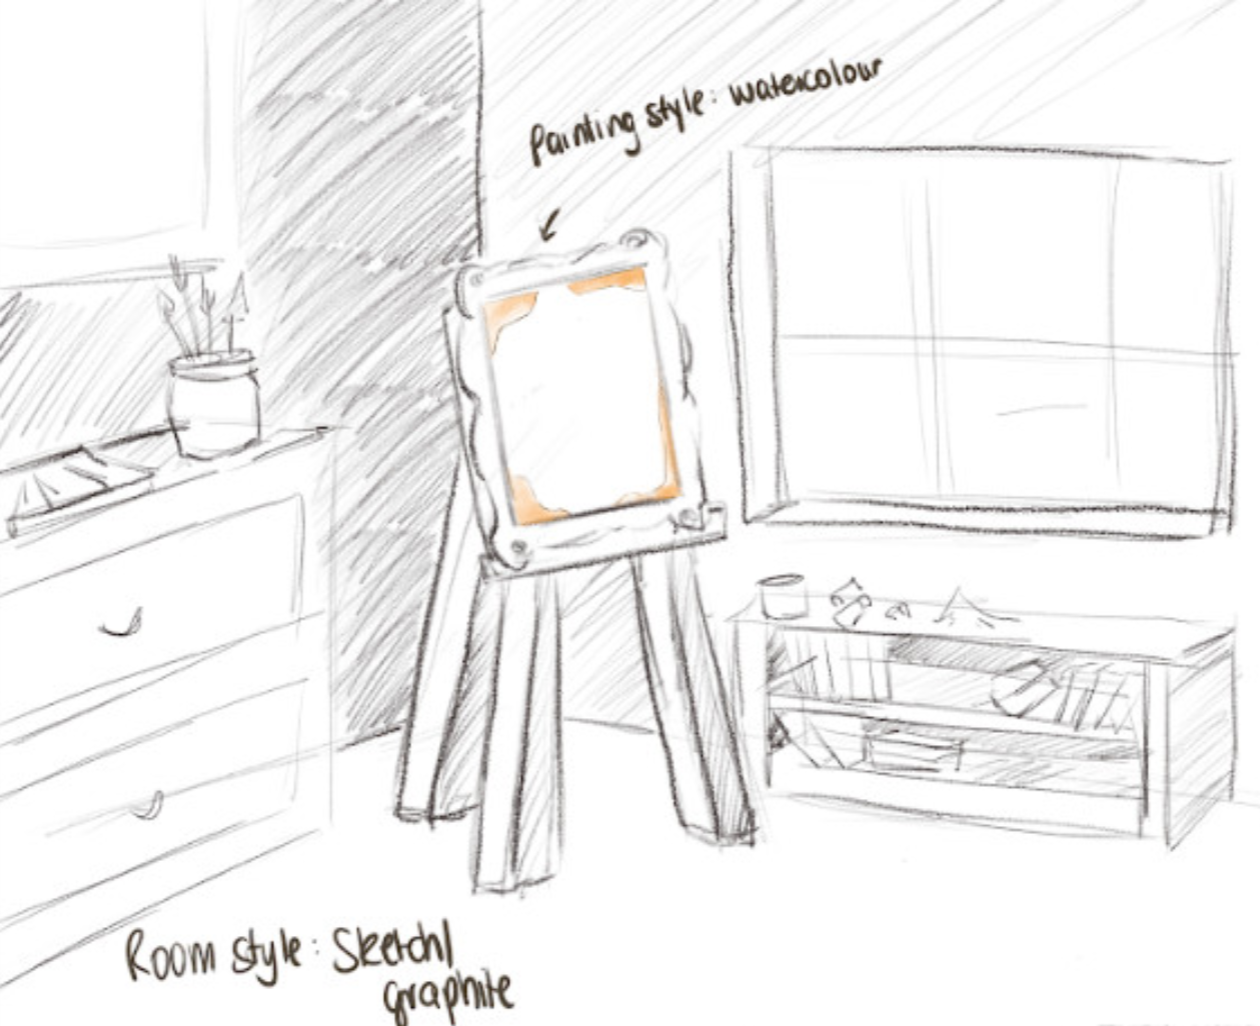 Painting style: watercolour
Room style: Sketch/
graphite